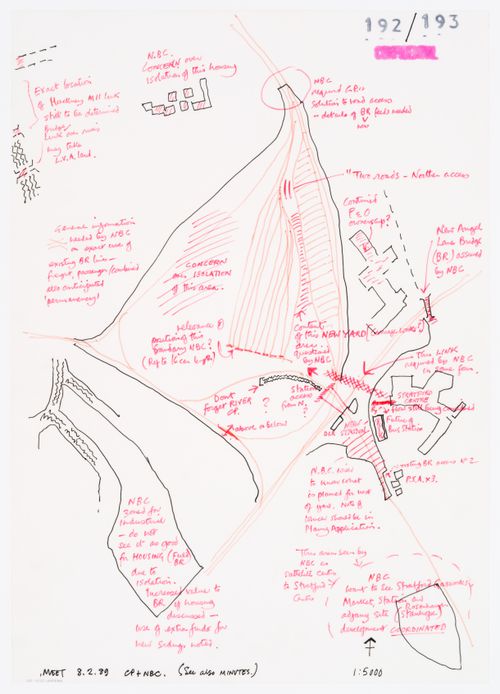 192/193
N.B.C.
CONCERN over
isolation of this housing
Exact location
of Hackney M11 link
still to be determined
Bridge
link over
may take
L.V.A. land.
NBC
required
solution to road access
– details of BR feeds needed
now
"Two roads – Northern access
Continued
P & O
ownership?
New Angel
Lane Bridge
(BR) assured
by NBC
General information
needed by NBC
on exact use of
existing BR lines –
freight, passenger/combined
also anticipated
'permanency'
CONCERN
over ISOLATION
of this area.
relevance &
position of this
boundary NBC?
(Rep to 16 car length)
Content
of this NEW YARD
area –
questioned
by NBC
This LINK
required by NBC
in some form.
Don't
forget RIVER
CP.
?
Station
access
from N.
?
above or below
STRATFORD
CENTRE
now still being considered
Future of
Bus Station
?
NEW
DLR STATION
existing BR access No 2.
P.S.A. x 3.
N.B.C. want
to know what
is planned for use
of yard, Note &
should be in
Planning Application.
NBC
zoned for
Industrial
– do not
see it as good
for HOUSING (Fund BR)
due to
isolation.
Increased value to
BR of housing
discussed –
use of extra funds for
new sidings noted.
This area seen by
NBC as
satellite centre
to Stratford
Centre
NBC
want to see Stratford
Market, Station and
adjoining site
development COORDINATED
MEET 8.2.89 CP + NBC. (See also MINUTES.)
1:5000